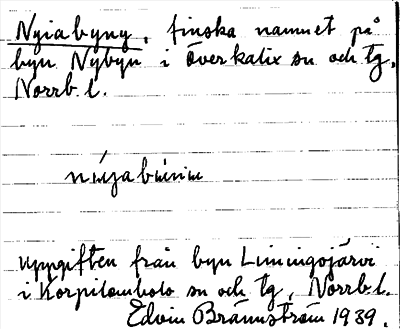 Nyiabyny, finska namnet på
byn Nybyn i Överkalix sn och tg,
Norrb.l.
uppgiften från byn Limingojärvi
i Korpilombolo sn och tg, Norrb.l.
Edvin Brännström 1939.